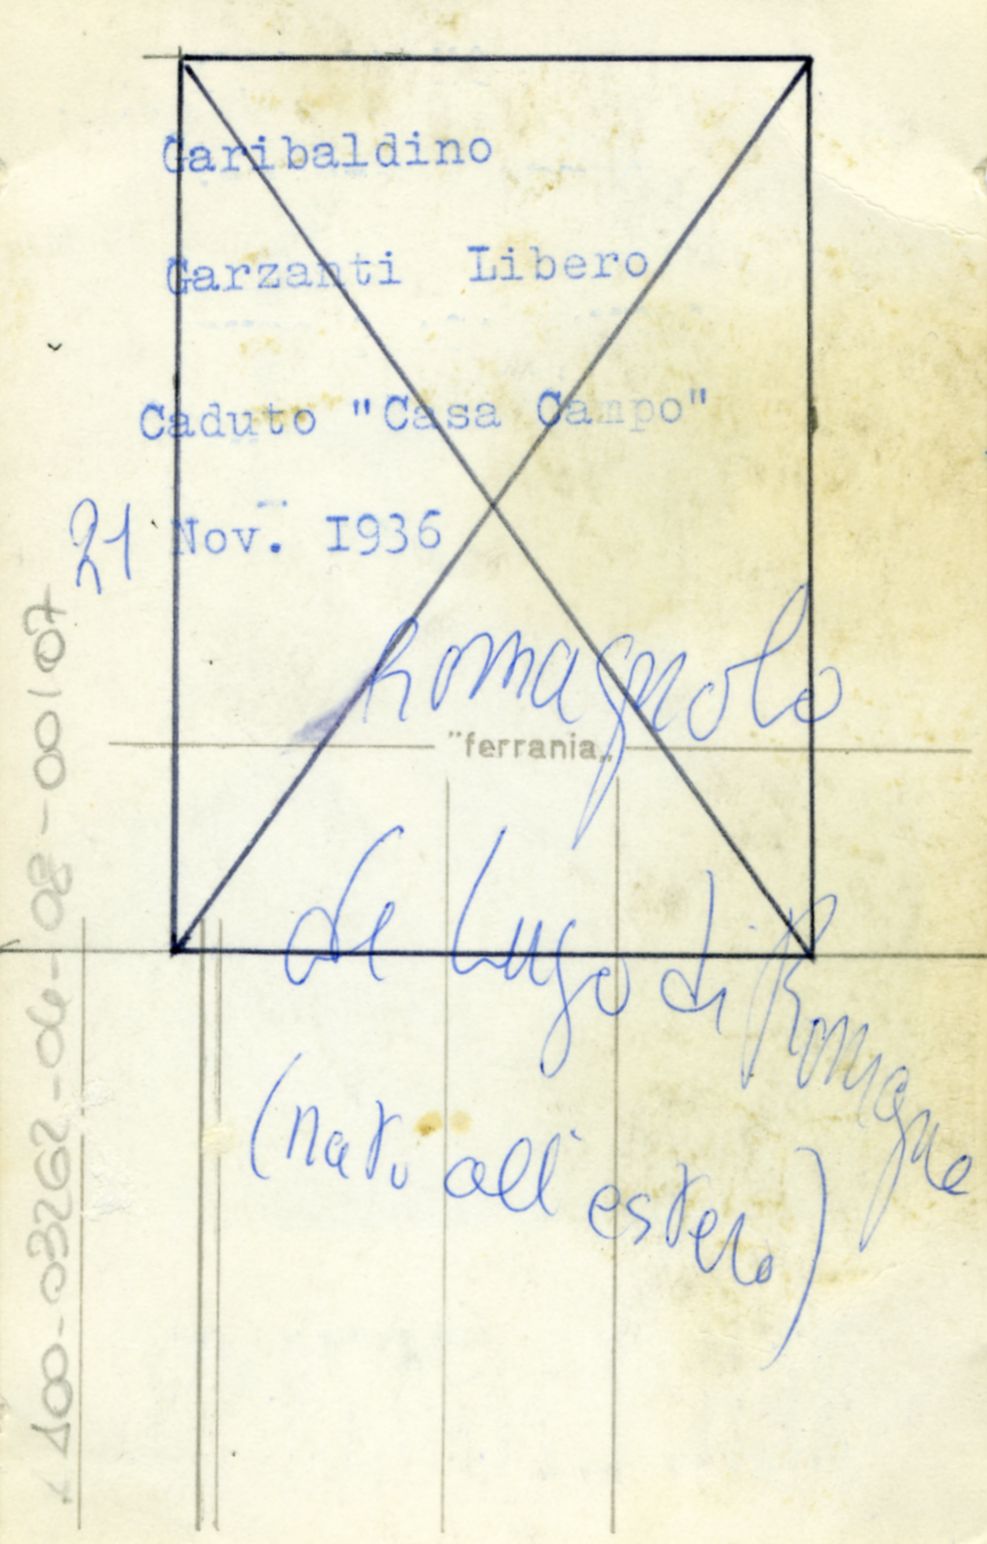 Garibaldino
Garzanti Libero
Caduto "Casa Campo"
21 Nov. I936
Romagnolo
"ferrania„
de Lugo di Romagna
(nato all'estero)
100-03262-de-08-00107